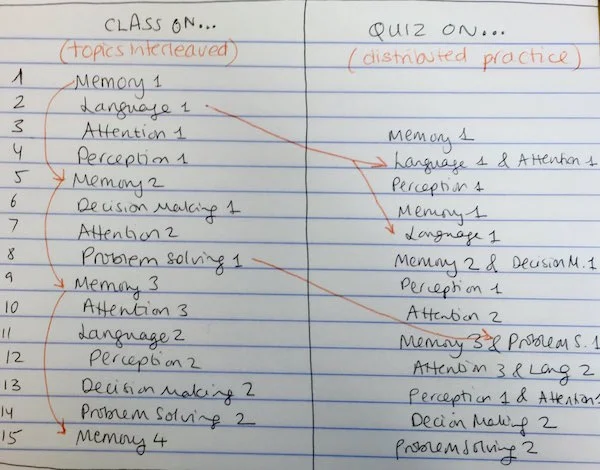 CLASS ON...
(topics interleaved)
1 Memory 1
2 Language 1
3 Attention 1
4 Perception 1
5 Memory 2
6 Decision Making 1
7 Attention 2
8 Problem Solving 1
9 Memory 3
10 Attention 3
11 Language 2
12 Perception 2
13 Decision Making 2
14 Problem Solving 2
15 Memory 4
QUIZ ON...
(distributed practice)
Memory 1
Language 1 & Attention 1
Perception 1
Memory 1
Language 1
Memory 2 & Decision M. 1
Perception 1
Attention 2
Memory 3 & Problem S. 1
Attention 3 & Lang 2
Perception 1 & Attention
Decion Making 2
Problem Solving 2